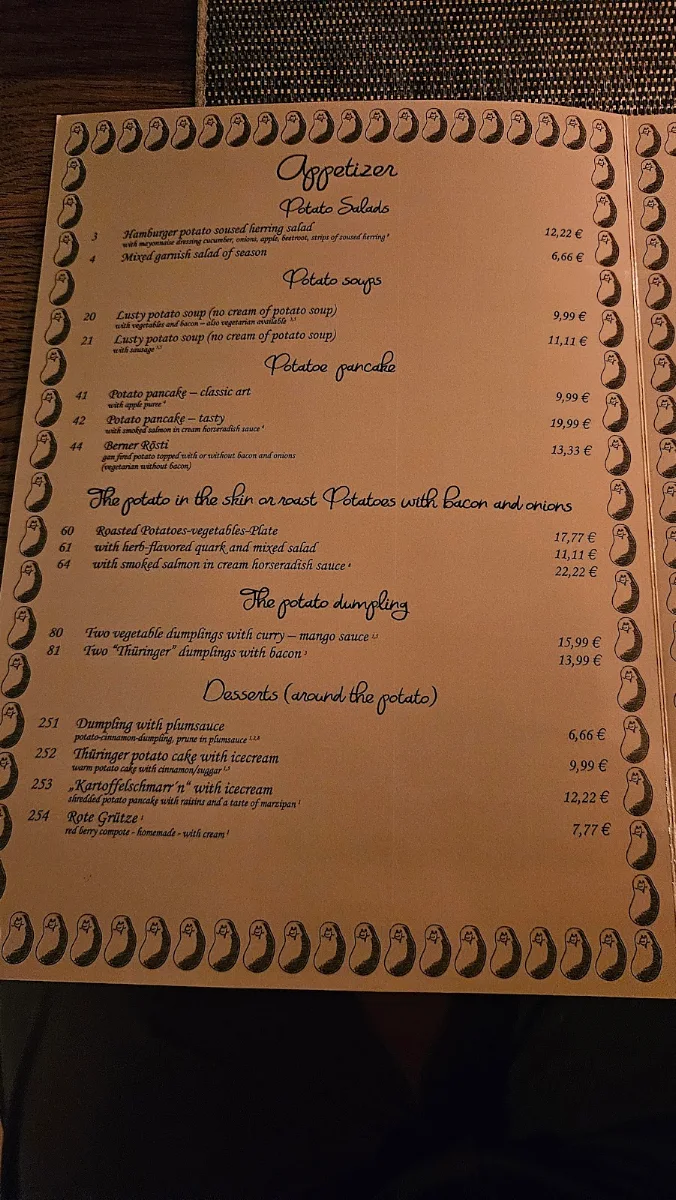 Appetizer
Potato Salads
3 Hamburger potato soused herring salad 12,22 €
with mayonnaise dressing cucumber, onions, apple, beetroot, strips of soused herring ⁴
4 Mixed garnish salad of season 6,66 €
Potato soups
20 Lusty potato soup (no cream of potato soup) 9,99 €
with vegetables and bacon – also vegetarian available
21 Lusty potato soup (no cream of potato soup) 11,11 €
with sausage
Potatoe pancake
41 Potato pancake – classic art 9,99 €
with apple puree ⁴
42 Potato pancake – tasty 19,99 €
with smoked salmon in cream horseradish sauce ⁴
44 Berner Rösti 13,33 €
gan fired potato topped with or without bacon and onions
(vegetarian without bacon)
The potato in the skin or roast Potatoes with bacon and onions
60 Roasted Potatoes-vegetables-Plate 17,77 €
61 with herb-flavored quark and mixed salad 11,11 €
64 with smoked salmon in cream horseradish sauce ⁴ 22,22 €
The potato dumpling
80 Two vegetable dumplings with curry – mango sauce 15,99 €
81 Two "Thüringer" dumplings with bacon 13,99 €
Desserts (around the potato)
251 Dumpling with plumsauce 6,66 €
potato-cinnamon-dumpling, prune in plumsauce
252 Thüringer potato cake with icecream 9,99 €
warm potato cake with cinnamon/suggar
253 „Kartoffelschmarr´n“ with icecream 12,22 €
shredded potato pancake with raisins and a taste of marzipan
254 Rote Grütze 7,77 €
red berry compote - homemade - with cream